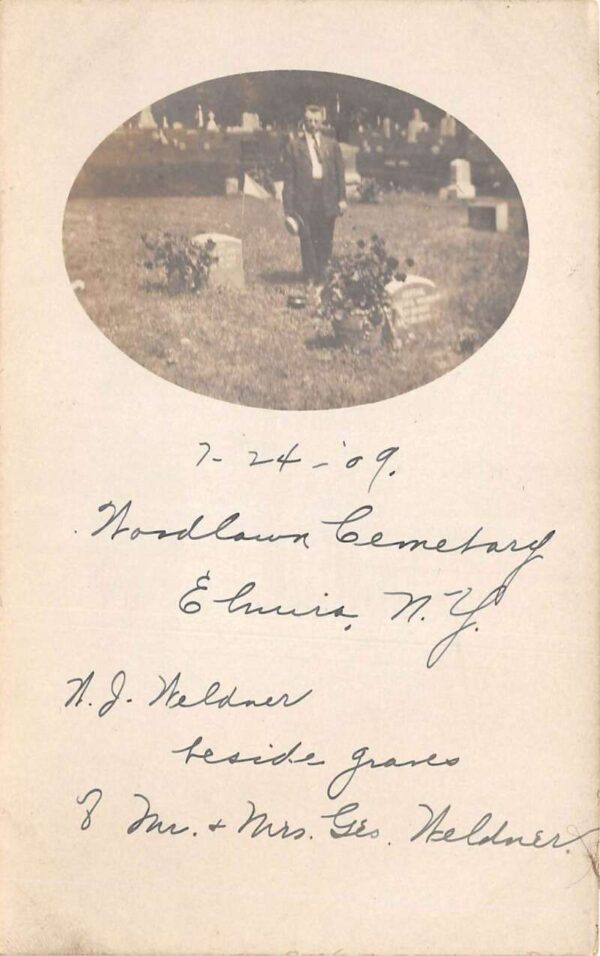 7-24-'09.
Woodlawn Cemetary
Elmira, N.Y.
W. J. Weldner
beside graves
of Mr. + Mrs. Geo. Weldner.